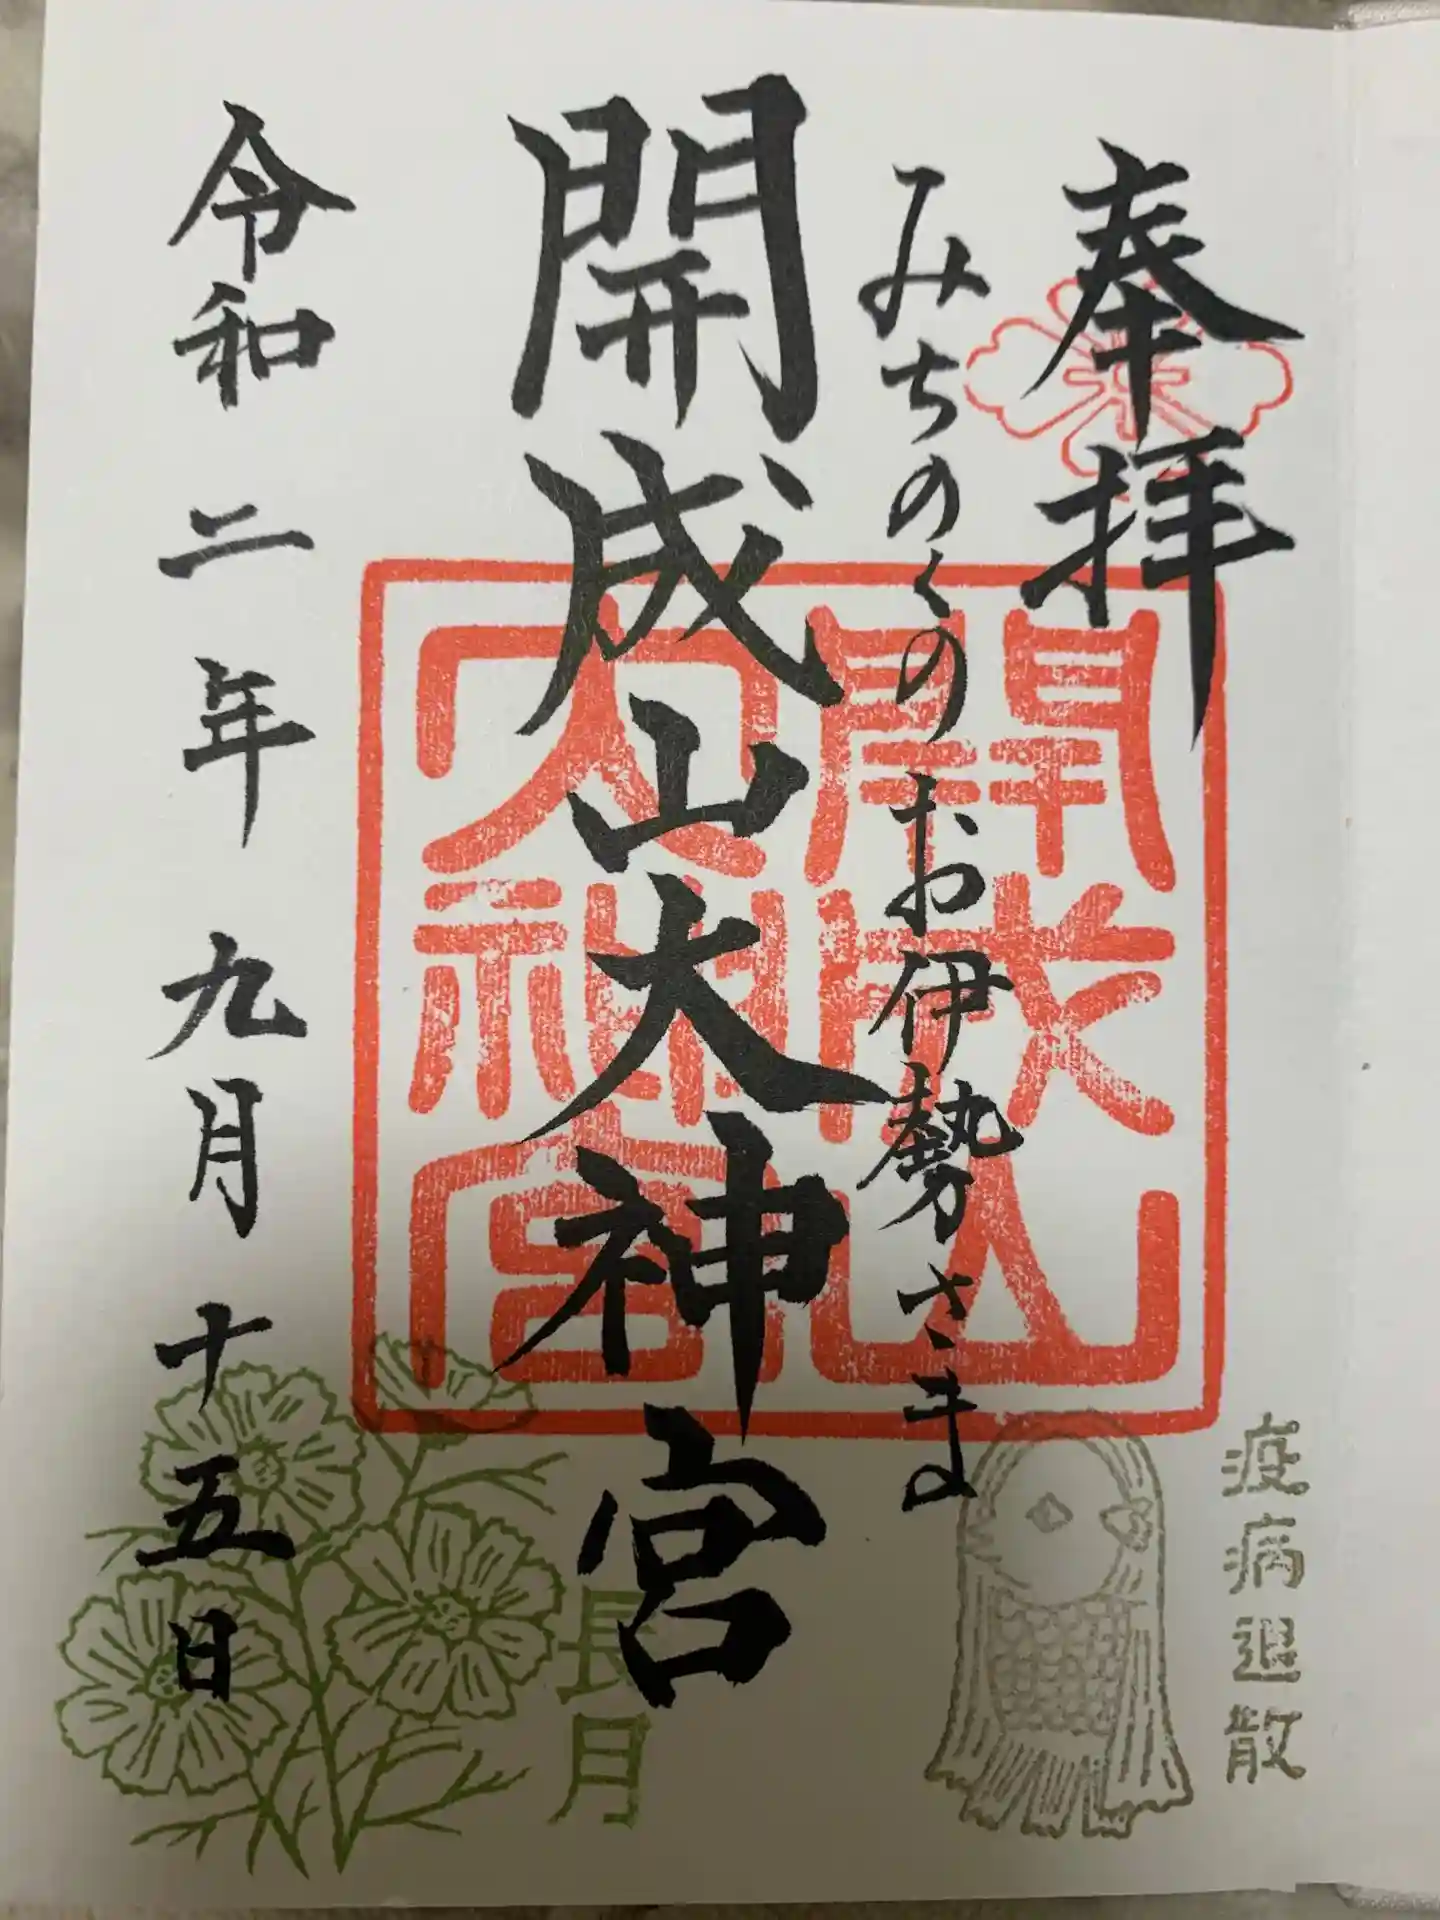 奉拝
みちのくのお伊勢さま
開成山大神宮
令和二年九月十五日
開成山
大神宮
疫病退散
長月